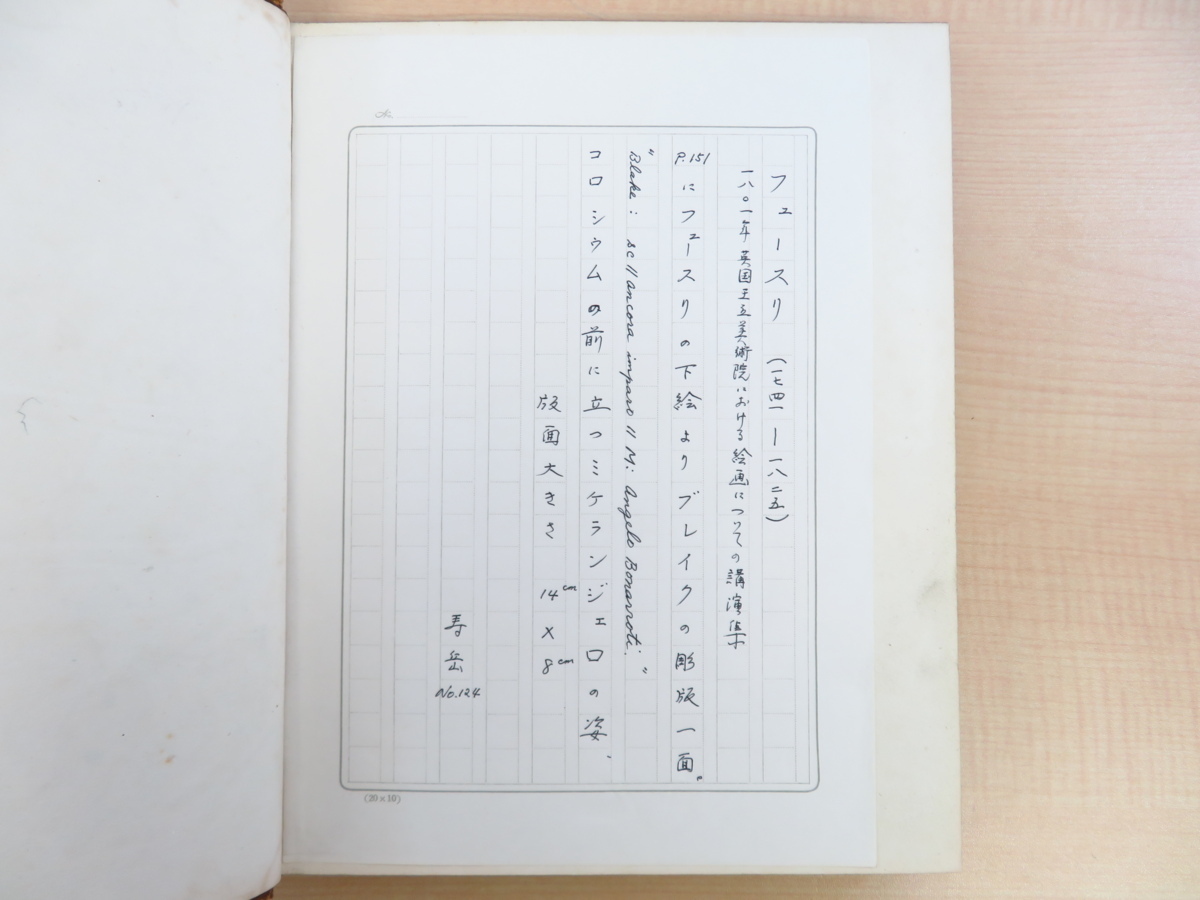 フューズリ (一七四一ー一八二五)
一八〇一年英国王立美術院における絵画についての講演集
P.151にフューズリの下絵よりブレイクの彫版一面。
"Blake : sc // ancora imparo // M: Angelo Bonarroti."
コロシウムの前に立つミケランジェロの姿、
版面大きさ 14cm × 8cm
寿岳
No.124
No.
(20×10)